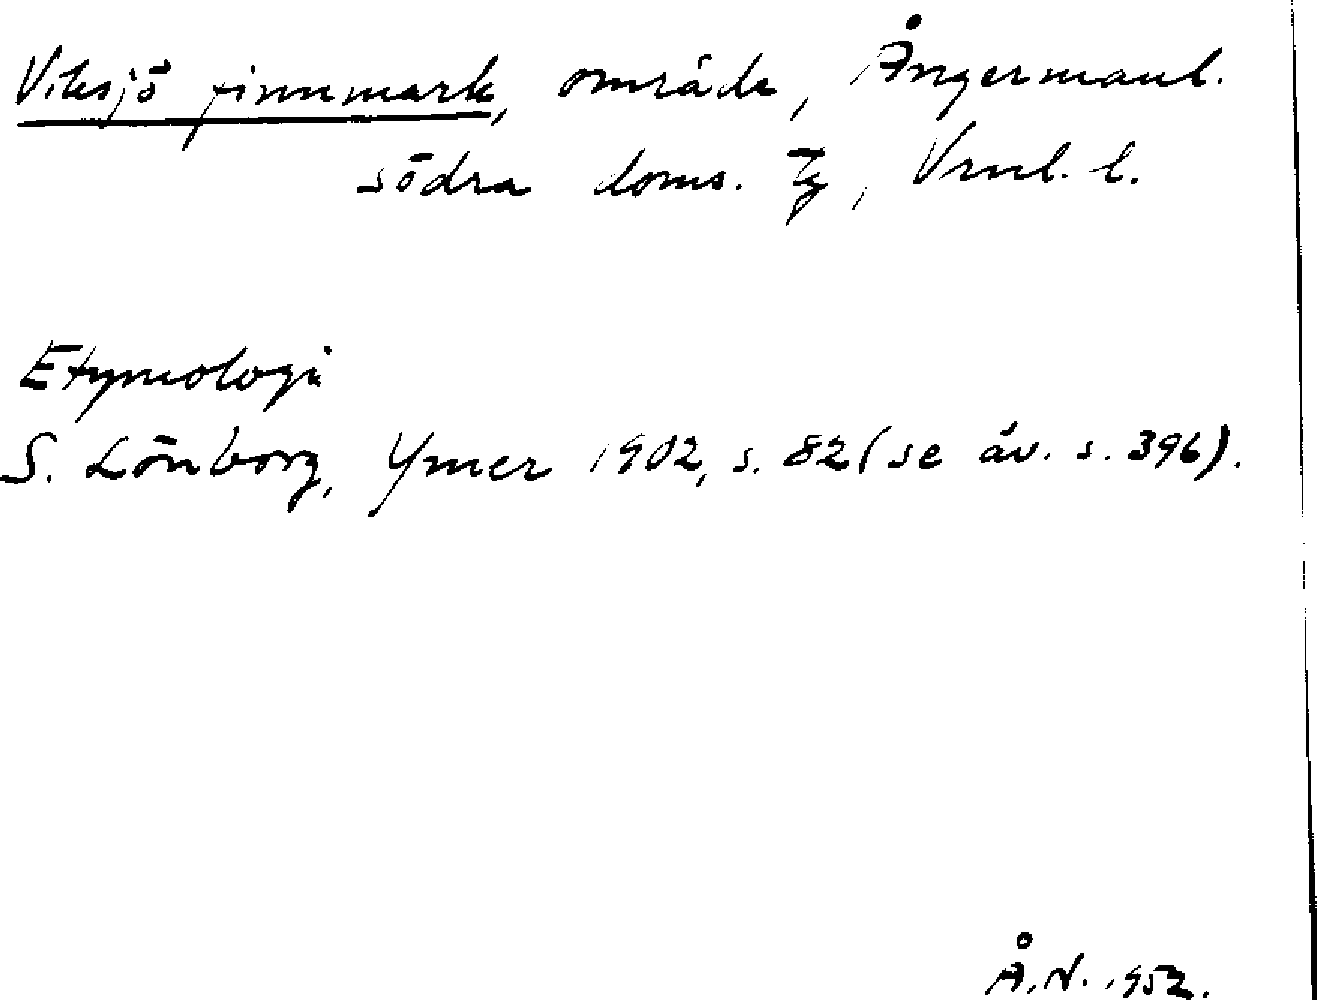 Viksjö finnmark, område, Ångermanl.
södra doms. tg, Vrnl. l.
Etymologi
S. Lönborg, Ymer 1902, s. 82 (se äv. s. 396).
Å. N. 1952.